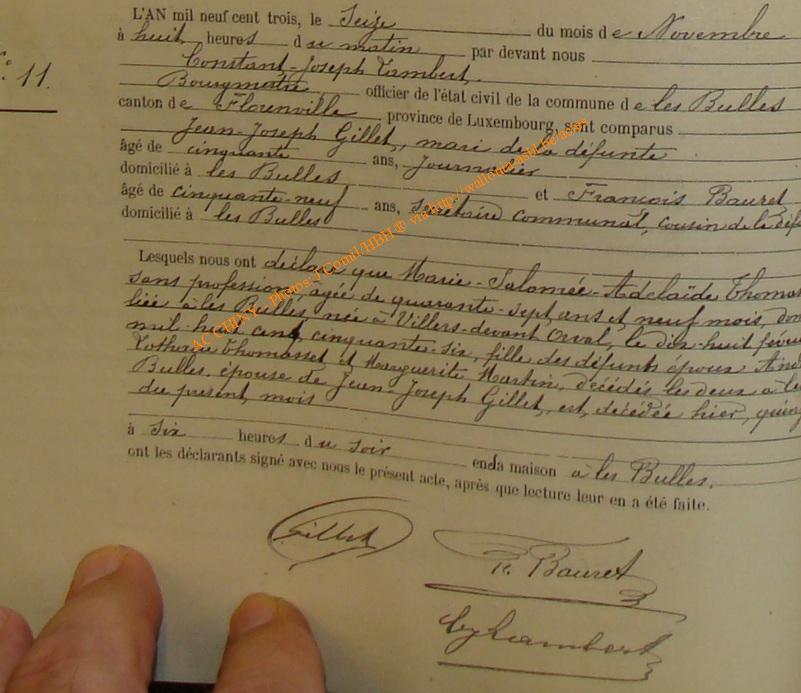 L'AN mil neuf cent trois, le Seize du mois de Novembre
à huit heures du matin par devant nous
Constant-Joseph Lambert
N°. 11.
Bourgmestre officier de l'état civil de la commune de les Bulles
canton de Florenville province de Luxembourg, sont comparus
Jean-Joseph Gillet, mari de la défunte
âgé de cinquante ans, Journalier
domicilié à les Bulles et François Bauret
âgé de cinquante-neuf ans, Secrétaire communal, cousin de la déf
domicilié à les Bulles
Lesquels nous ont déclaré que Marie-Salomée-Adelaïde Thomas
sans profession, âgée de quarante-sept ans et neuf mois, dom
liée à les Bulles, née à Villers-devant Orval, le dix-huit févri
mil huit cent cinquante-six, fille des défunts époux And
Thomasset et Marguerite Martin, décédés les deux à les
Bulles, épouse de Jean-Joseph Gillet, est décédée hier, quinz
du présent mois
à six heures du soir en la maison à les Bulles.
ont les déclarants signé avec nous le présent acte, après que lecture leur en a été faite.
Gillet
F. Bauret
Lambert
ACCHINY - Photos J Comil/HBH ® via http://walloniehasth.be